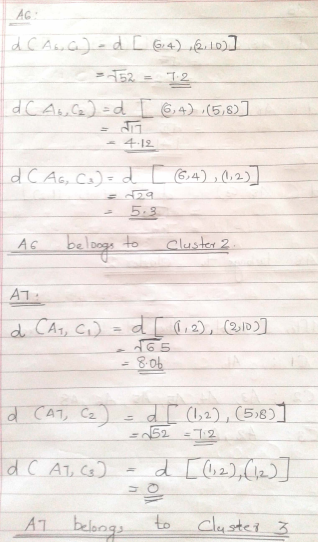 A6:
d(A6,C1) = d [ (6,4) ,(2,10)]
= √52 = 7.2
d(A6,C2) = d [ (6,4) ,(5,8)]
= √17
= 4.12
d(A6, C3) = d [ (6,4) ,(1,2)]
= √29
= 5.3
A6 belongs to Cluster 2.
A7:
d (A7, C1) = d[ (1,2), (2,10)]
= √65
= 8.06
d (A7, C2) = d[ (1,2) , (5,8)]
= √52 = 7.2
d( A7, C3) = d [(1,2),(1,2)]
= 0
A7 belongs to Cluster 3